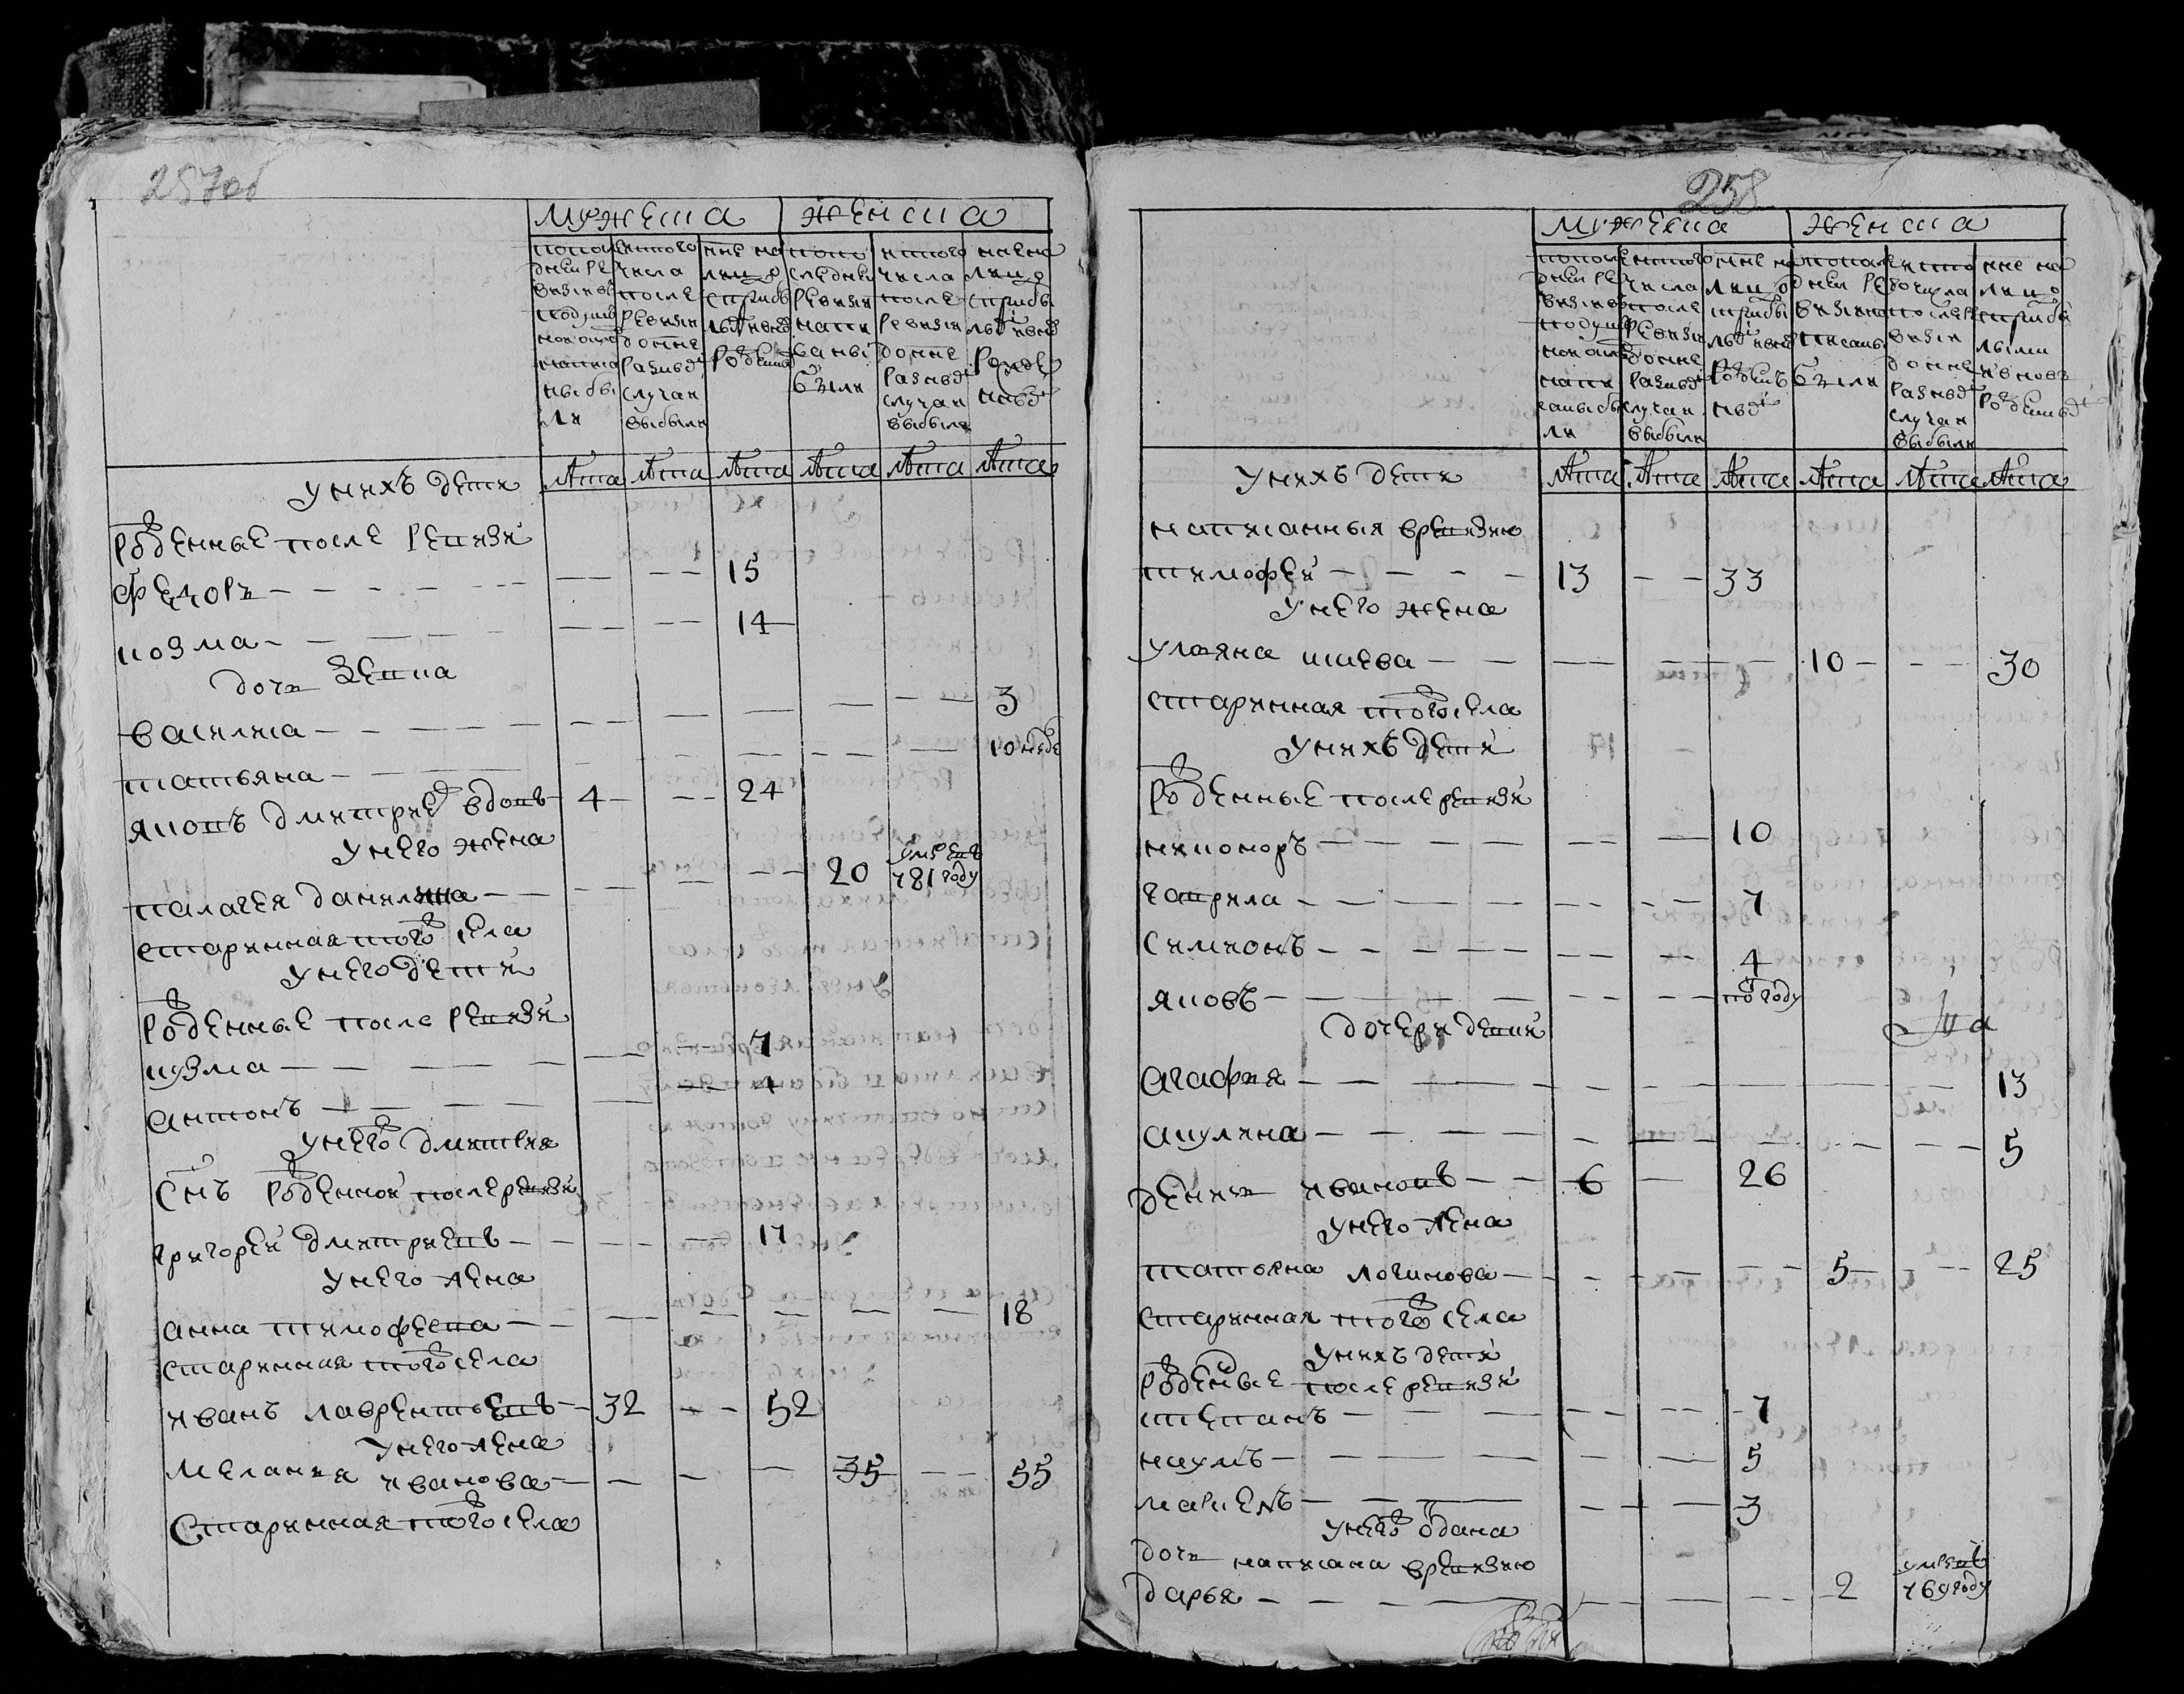 257об
мужеска женска
попоследней ревизии въподушной окладъ написаны были
исътого числа после ревизии до ныне разными случаи выбыли
ныне на лицо съприбылыми и вновь рожденными
попоследней ревизии написаны были
исътого числа после ревизии до ныне разными случаи выбыли
ныне на лицо съприбылыми и вновь рожденными
лета лета лета лета лета лета
у нихъ дети
рожденные после ревизи
федоръ — — — 15
козма — — — 14
дочь девка
василиса — — — 3
татьяна — — — 10 неде
яковъ дмитриев вдовъ 4 — — 24
у него жена
палагея данилина — — — 20 умре въ 781 году
старинная того села
у него дети
рожденные после ревизи
кузма — — — 7
антонъ — — — 4
у него дмитрия
снъ рожденной после ревизи
григорей дмитриевъ — — — 17
у него жена
анна тимофеева — — — 18
старинная того села
иванъ лаврентьевъ 32 — — 52
у него жена
меланья иванова — — — 35 — — 55
старинная того села
258
мужеска женска
попоследней ревизии въподушной окладъ написаны были
исътого числа после ревизии до ныне разными случаи выбыли
ныне на лицо съприбылыми и вновь рожденными
попоследней ревизии написаны были
исътого числа после ревизии до ныне разными случаи выбыли
ныне на лицо съприбылыми и вновь рожденными
у нихъ дети
лета лета лета лета лета лета
написанныя вревизию
тимофей — — — 13 — — 33
у него жена
ульяна исаева — — — 10 — — 30
старинная того села
у нихъ дети
рожденные после ревизи
никоноръ — — — 10
гаврила — — — 7
симионъ — — — 4
яковъ — — — по году
дочери девки
агафия — — — 13
акулина — — — 5
денисъ ивановъ — 6 — 26
у него жена
татьяна логинова — — — 5 — — 25
старинная того села
у нихъ дети
рожденые после ревизи
степанъ — — — 7
наумъ — — — 5
маркелъ — — — 3
у него одана
дочь написана вревизию
дарья — — — 2 умре въ 769 году